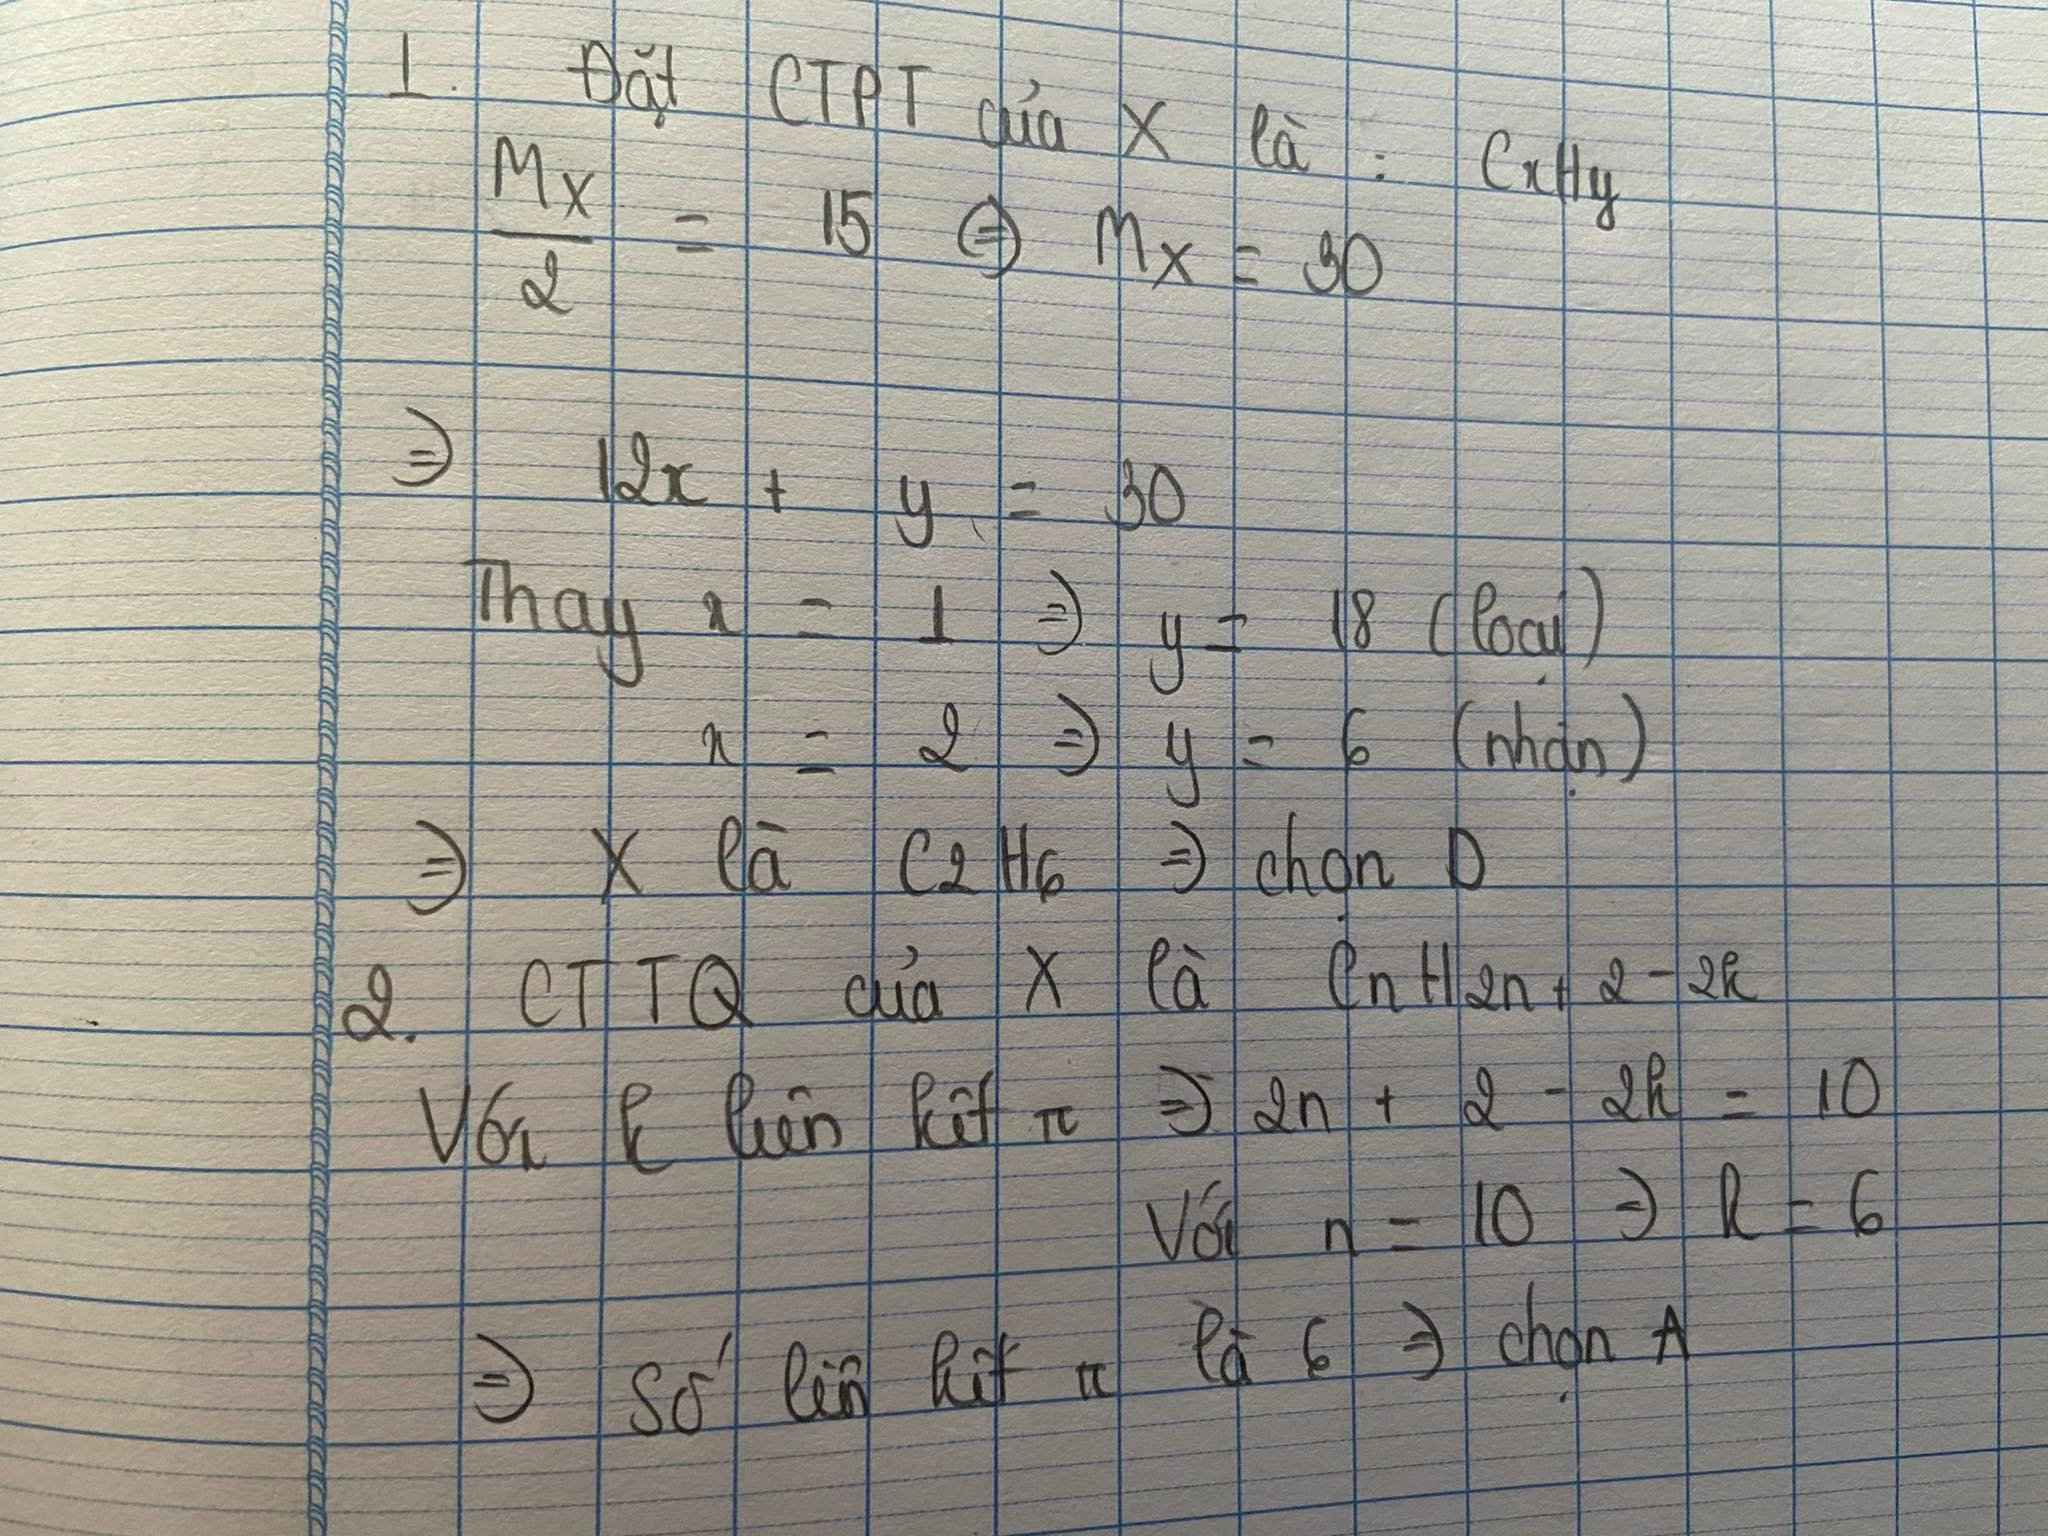 1. Đặt CTPT của X là : CxHy
Mx/2 = 15 ⇔ Mx = 30
⇒ 12x + y = 30
Thay x = 1 ⇒ y = 18 (loại)
x = 2 ⇒ y = 6 (nhận)
⇒ X là C2H6 ⇒ chọn D
2. CTTQ của X là CnH2n+2-2k
Với k liên kết π ⇒ 2n + 2 - 2k = 10
Với n = 10 ⇒ k = 6
⇒ Số liên kết π là 6 ⇒ chọn A